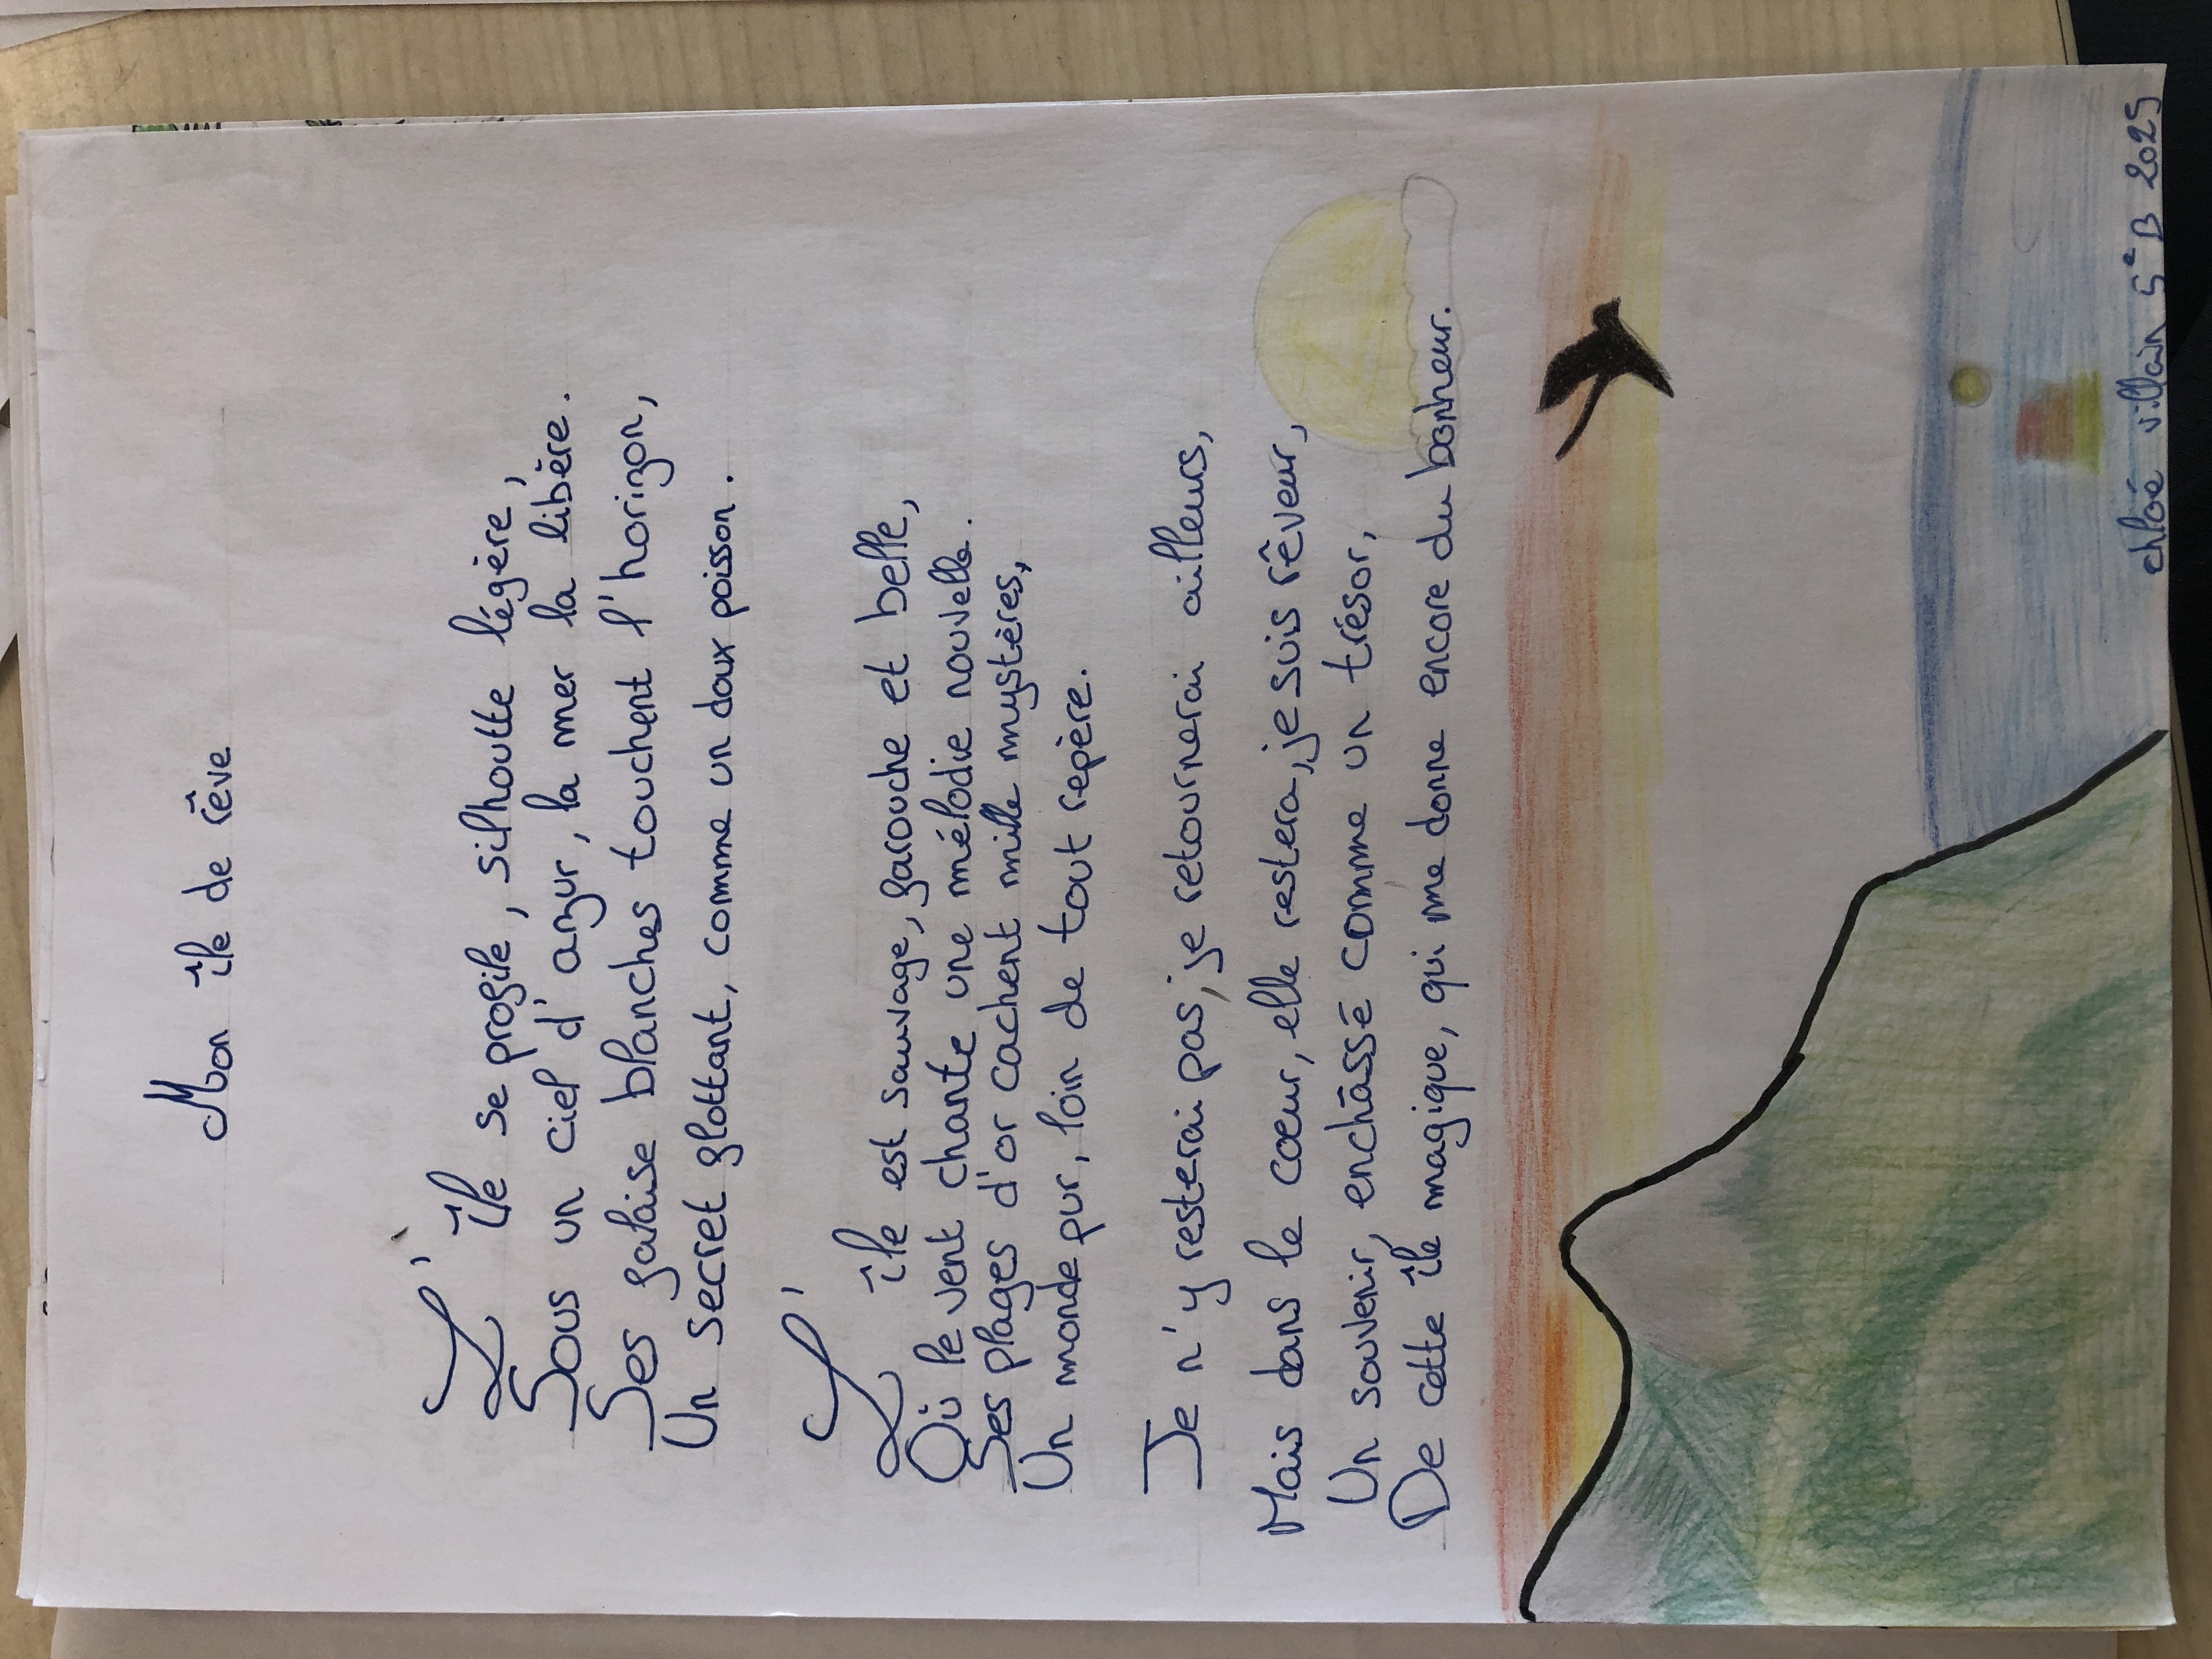 Mon île de rêve
L' île se profile, silhoutte légère,
Sous un ciel d'azur, la mer la libère.
Ses falaise blanches touchent l'horizon,
Un secret flottant, comme un doux poisson.
L' île est sauvage, farouche et belle,
Où le vent chante une mélodie nouvelle.
Ses plages d'or cachent mille mystères,
Un monde pur, loin de tout repère.
Je n'y resterai pas, je retournerai ailleurs,
Mais dans le cœur, elle restera, je suis rêveur,
Un souvenir, enchâssé comme un trésor,
De cette île magique, qui me donne encore du bonheur.
chloé villain 5e B 2025